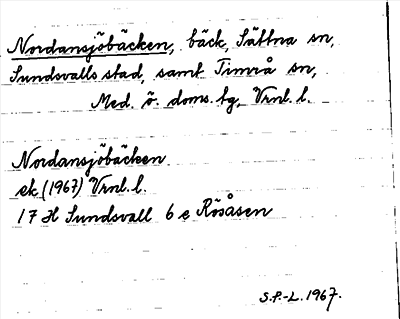 Nordansjöbäcken, bäck, Sättna sn,
Sundsvalls stad, samt Timrå sn,
Med. ö. doms. tg, Vrnl. l.
Nordansjöbäcken
ek (1967) Vrnl. l.
17 H Sundsvall 6 e Rösåsen
S.P.-L. 1967.